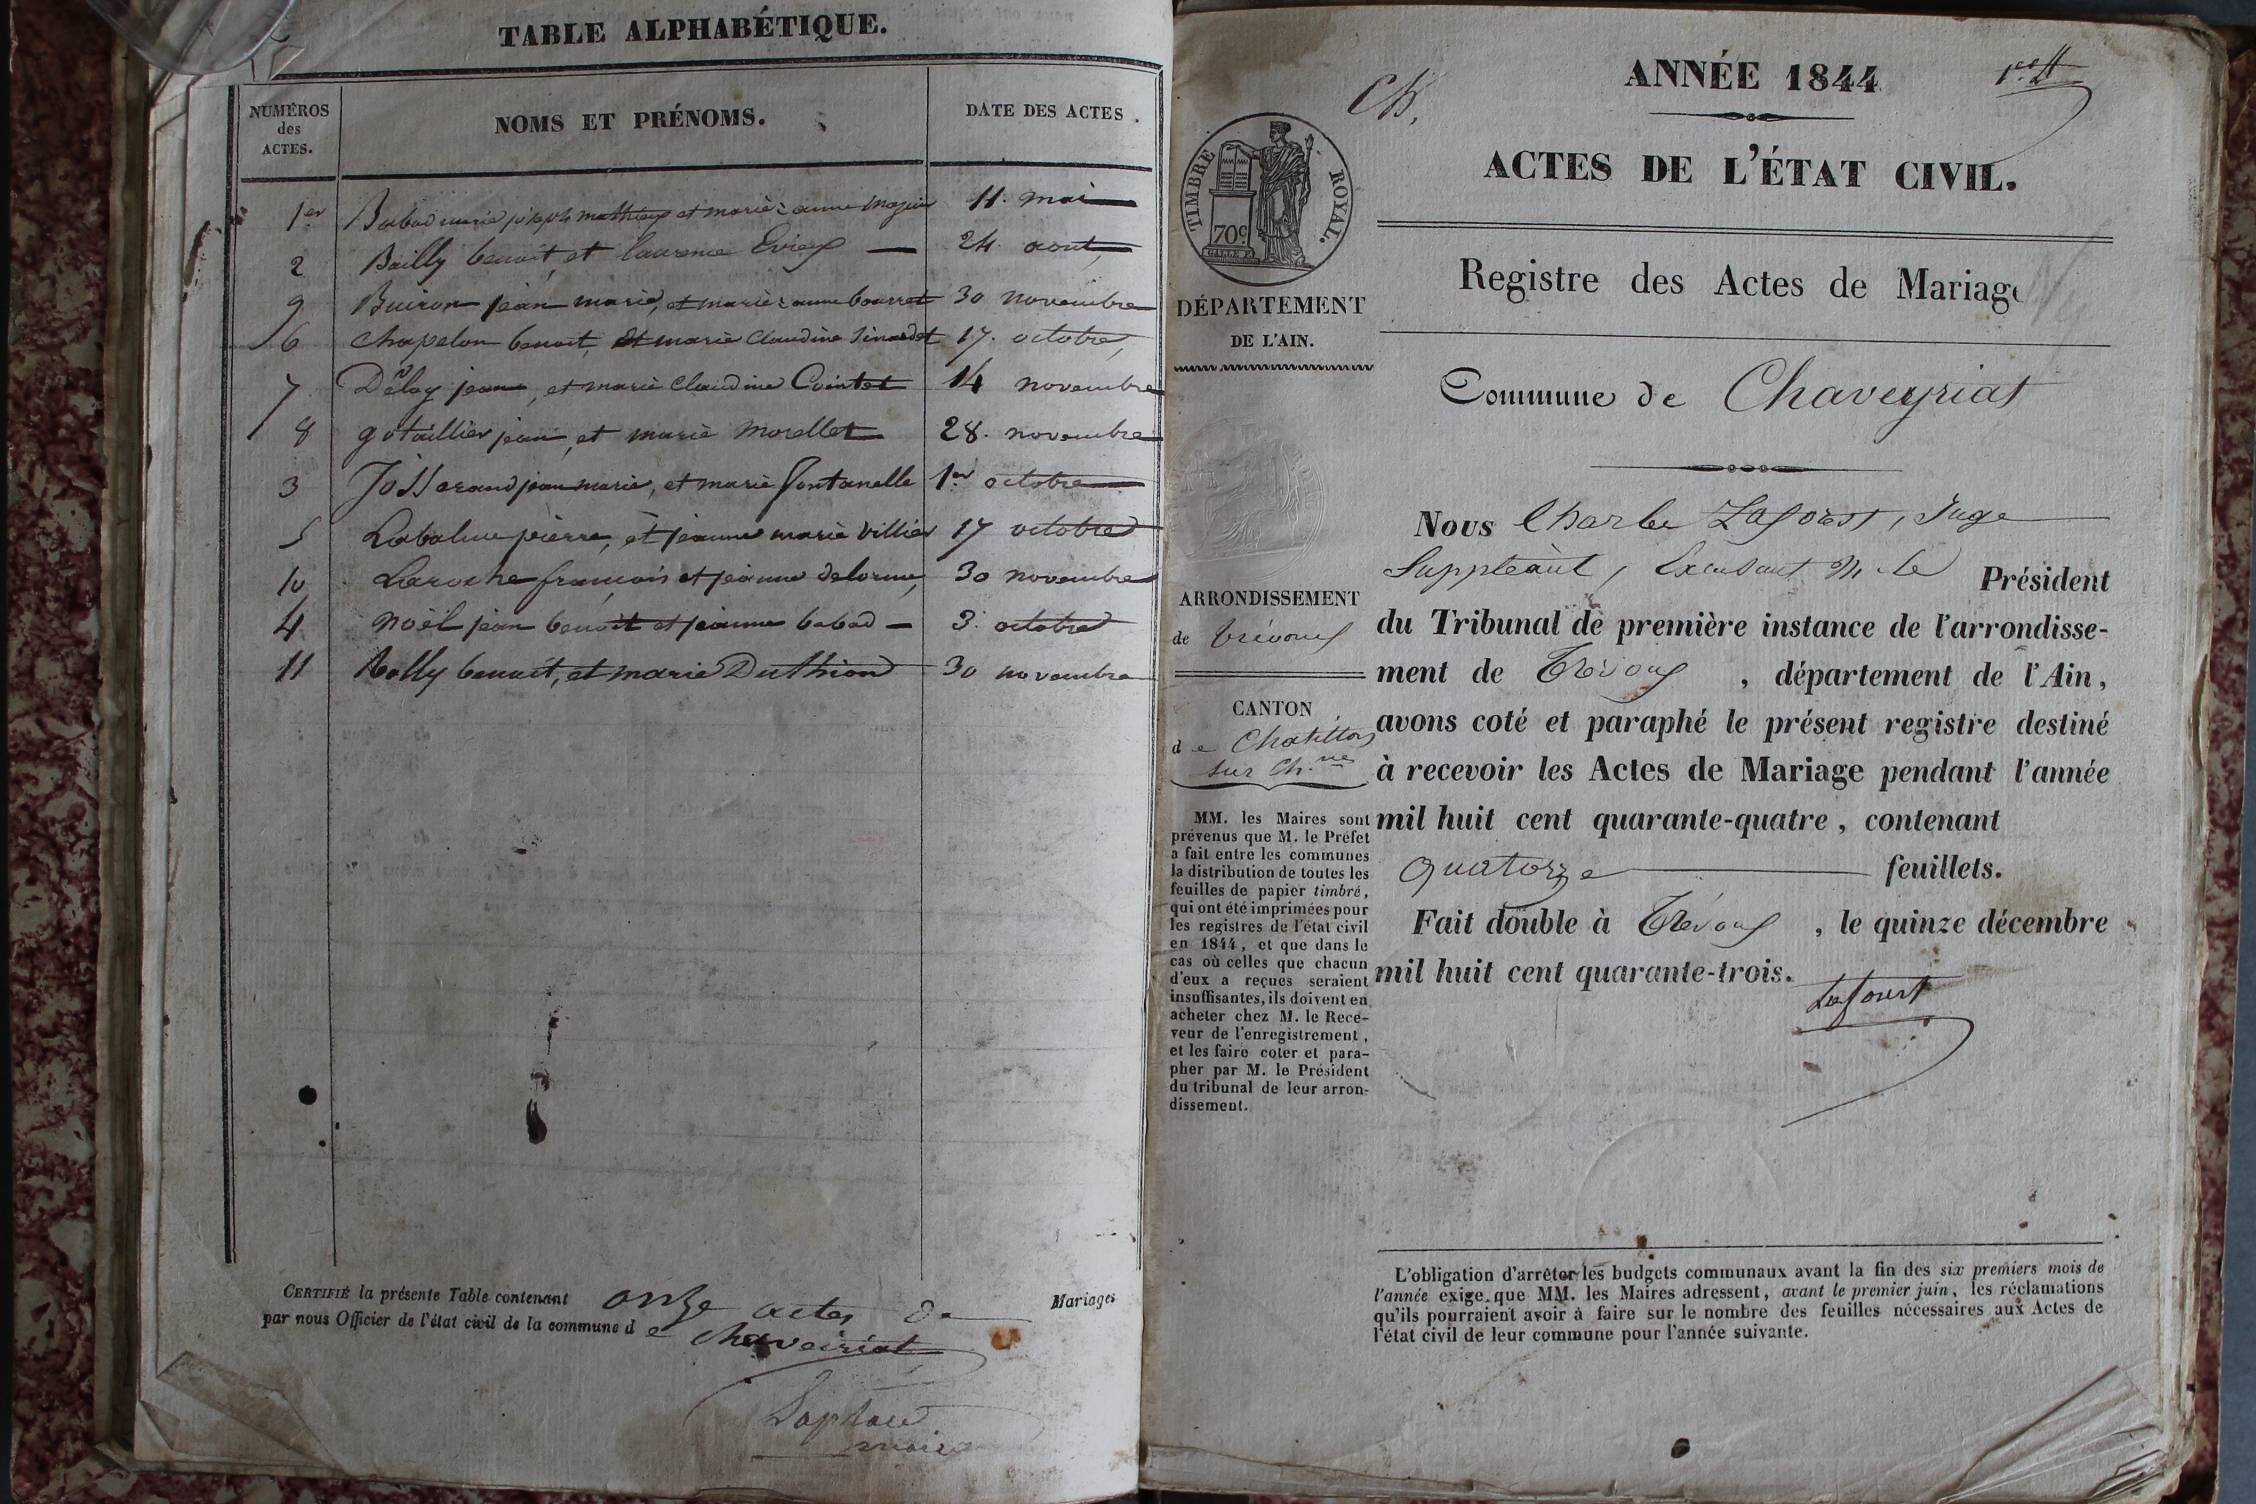 TABLE ALPHABÉTIQUE.
NUMÉROS
des
ACTES.
NOMS ET PRÉNOMS.
DATE DES ACTES.
1er Babad marie joseph mathieu et marie anne 11. mai
2 Bailly benoit, et laurence Evieux 24. aout,
9 Buiron jean marie, et marie anne bourret 30 novembre
6 Chapelon benoit, et marie Claudine 17. octobre,
7 Delay jean, et marie Claudine Cointet 14 novembre
8 gotaillier jean, et marie Morellet 28. novembre
3 Josserand jean marie, et marie fontanelle 1er octobre
5 Labalme pierre, et jeanne marie villier 17 octobre
10 Laroche françois et jeanne delorme, 30 novembre
4 noël jean benoit et jeanne babad 3. octobre
11 Rolly benoit, et marie Duthion 30 novembre
CERTIFIÉ la présente Table contenant onze actes de Mariages
par nous Officier de l'état civil de la commune de Chaveiriat
maire
Ch.
ANNÉE 1844
ACTES DE L'ÉTAT CIVIL.
TIMBRE ROYAL.
70c.
Registre des Actes de Mariage
DÉPARTEMENT
DE L'AIN.
Commune de Chaveyriat
Nous Charles Laforest, Juge
Suppléant, Excusant M. le Président
ARRONDISSEMENT
de Trévoux
du Tribunal de première instance de l'arrondisse-
ment de Trévoux, département de l'Ain,
CANTON
de Chatillon
sur Ch.ne
avons coté et paraphé le présent registre destiné
à recevoir les Actes de Mariage pendant l'année
mil huit cent quarante-quatre, contenant
quatorze feuillets.
Fait double à Trévoux, le quinze décembre
mil huit cent quarante-trois.
Laforest
MM. les Maires sont
prévenus que M. le Préfet
a fait entre les communes
la distribution de toutes les
feuilles de papier timbré,
qui ont été imprimées pour
les registres de l'état civil
en 1844, et que dans le
cas où celles que chacun
d'eux a reçues seraient
insuffisantes, ils doivent en
acheter chez M. le Rece-
veur de l'enregistrement,
et les faire coter et para-
pher par M. le Président
du tribunal de leur arron-
dissement.
L'obligation d'arrêter les budgets communaux avant la fin des six premiers mois de
l'année exige que MM. les Maires adressent, avant le premier juin, les réclamations
qu'ils pourraient avoir à faire sur le nombre des feuilles nécessaires aux Actes de
l'état civil de leur commune pour l'année suivante.